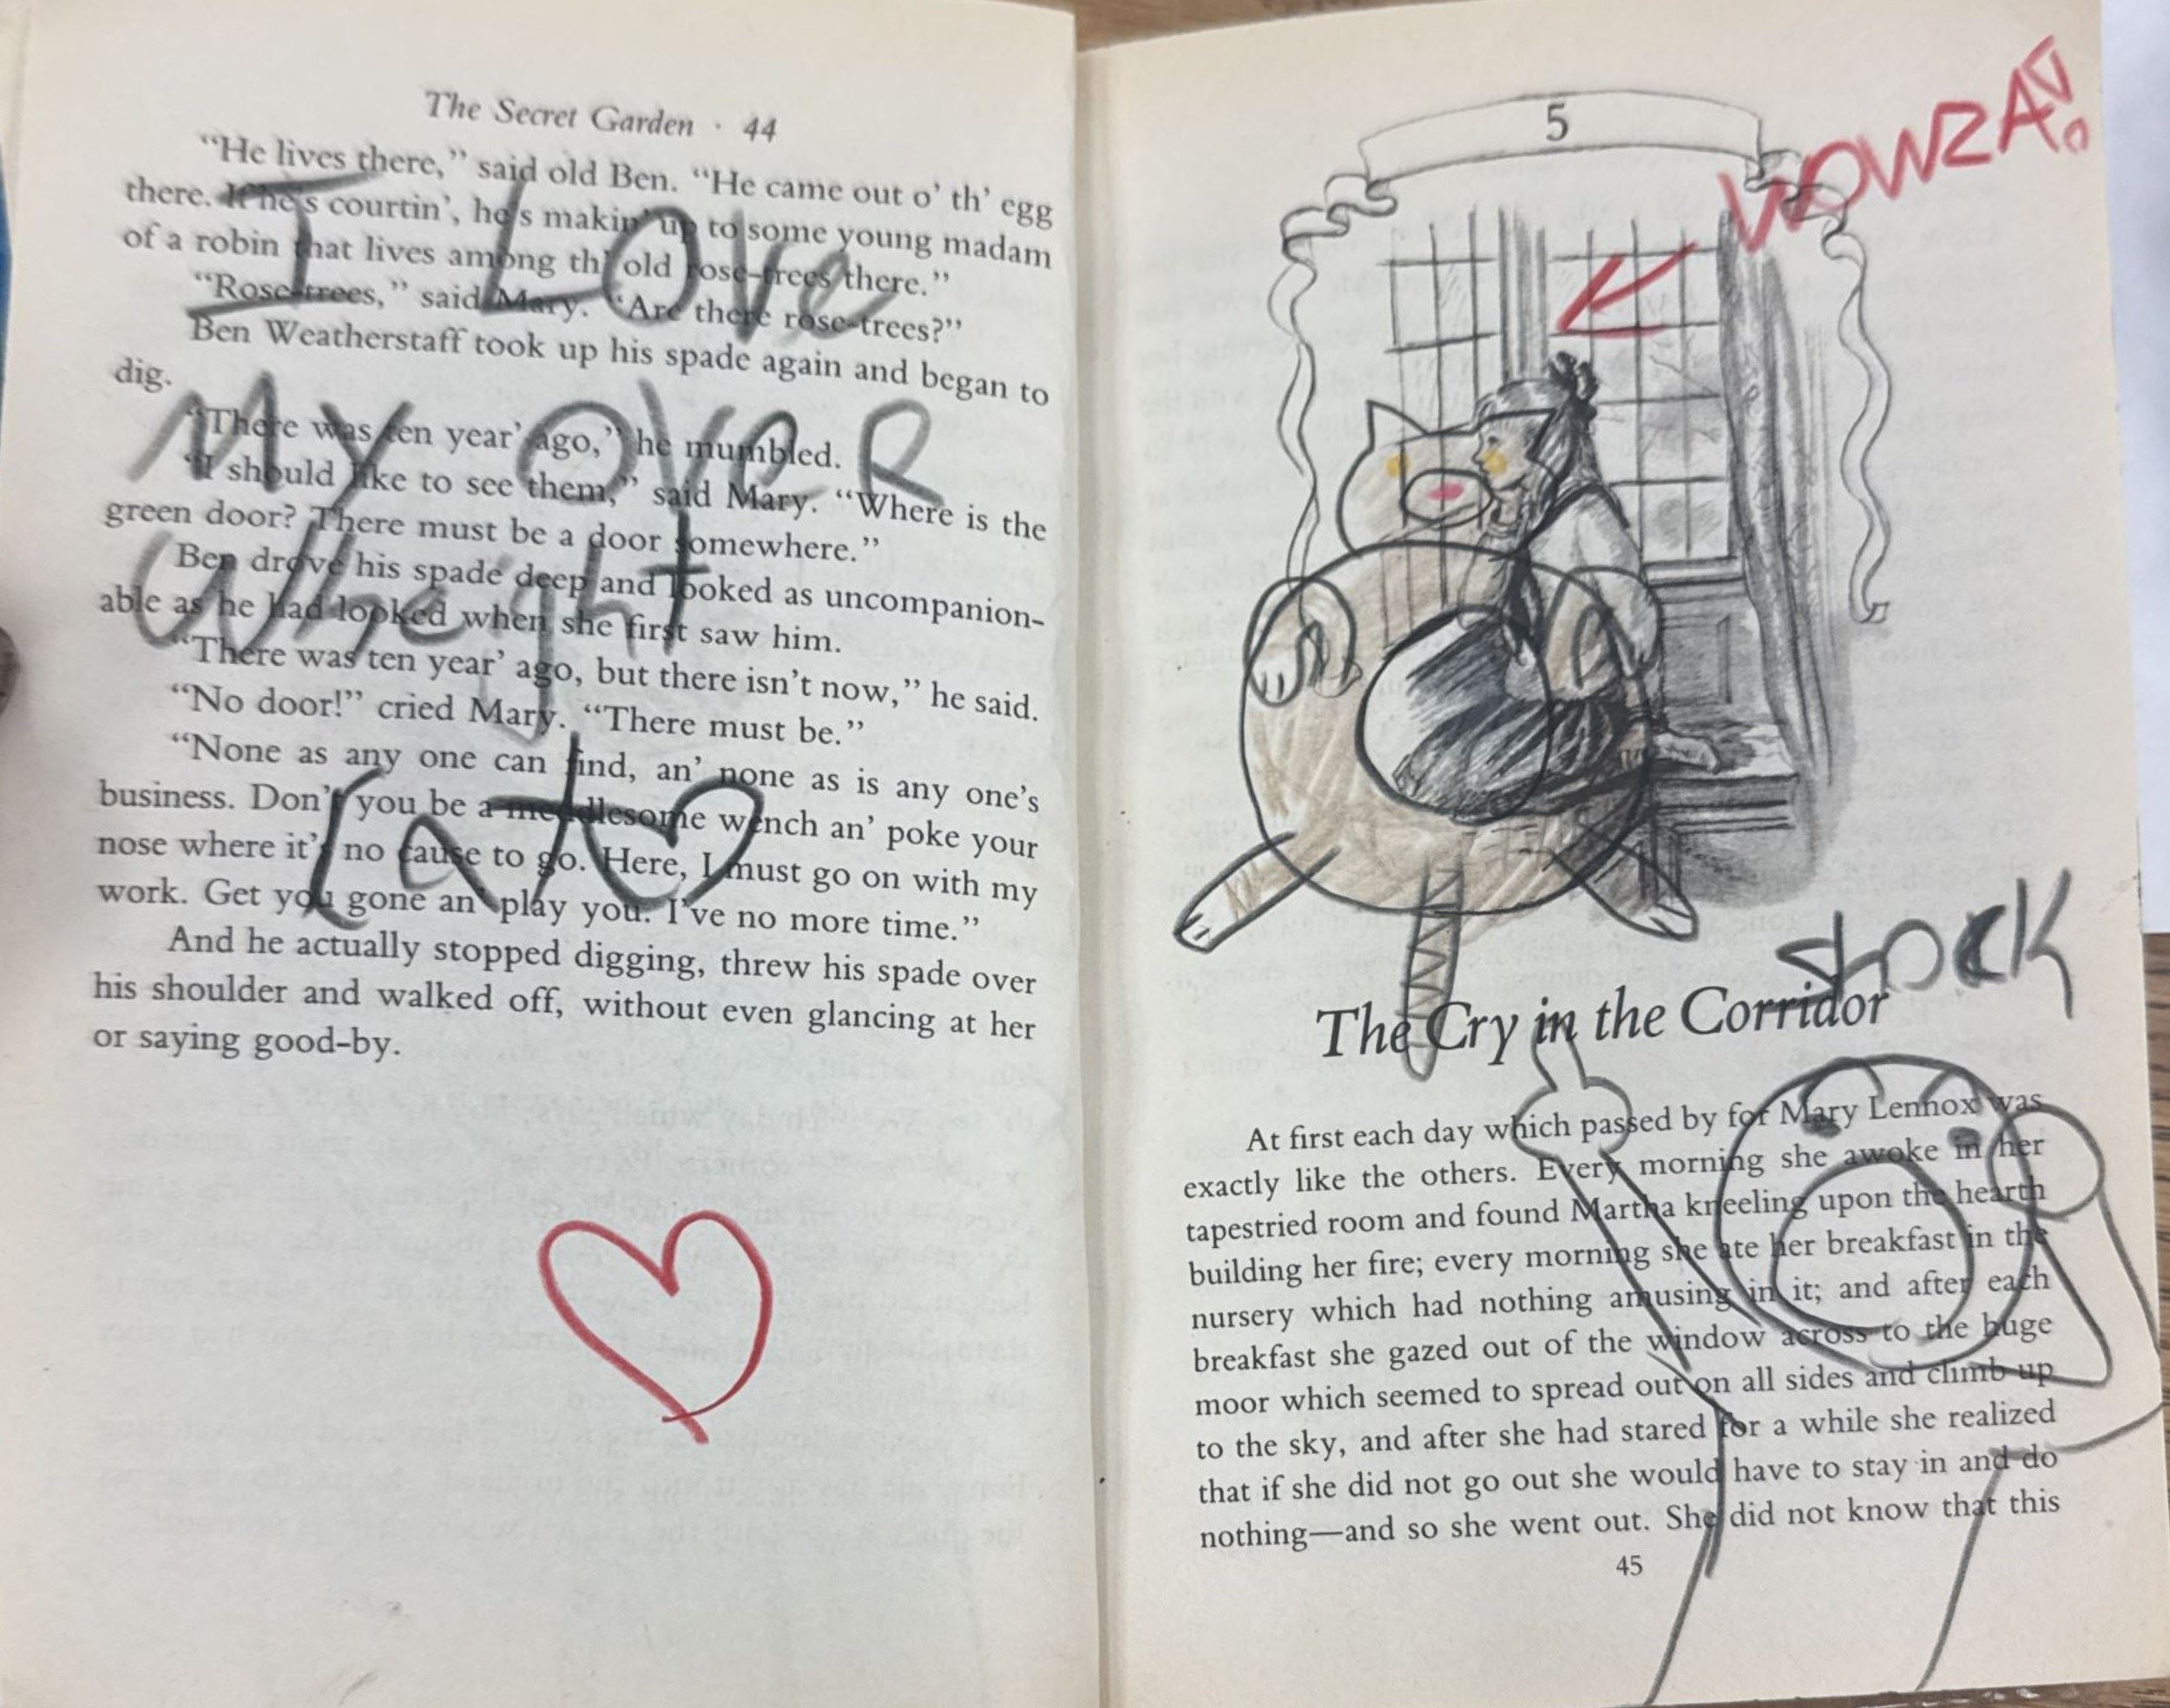 The Secret Garden · 44
“He lives there,” said old Ben. “He came out o’ th’ egg
there. If he’s courtin’, he’s makin’ up to some young madam
of a robin that lives among th’ old rose-trees there.”
“Rose-trees,” said Mary. “Are there rose-trees?”
Ben Weatherstaff took up his spade again and began to
dig.
“There was ten year’ ago,” he mumbled.
“I should like to see them,” said Mary. “Where is the
green door? There must be a door somewhere.”
Ben drove his spade deep and looked as uncompanion-
able as he had looked when she first saw him.
“There was ten year’ ago, but there isn’t now,” he said.
“No door!” cried Mary. “There must be.”
“None as any one can find, an’ none as is any one’s
business. Don’t you be a meddlesome wench an’ poke your
nose where it’s no cause to go. Here, I must go on with my
work. Get you gone an’ play you. I’ve no more time.”
And he actually stopped digging, threw his spade over
his shoulder and walked off, without even glancing at her
or saying good-by.
I LOVe
My OVeR
Wheight
Cat
5
WOWZA!
SHOCK
The Cry in the Corridor
At first each day which passed by for Mary Lennox was
exactly like the others. Every morning she awoke in her
tapestried room and found Martha kneeling upon the hearth
building her fire; every morning she ate her breakfast in the
nursery which had nothing amusing in it; and after each
breakfast she gazed out of the window across to the huge
moor which seemed to spread out on all sides and climb up
to the sky, and after she had stared for a while she realized
that if she did not go out she would have to stay in and do
nothing—and so she went out. She did not know that this
45